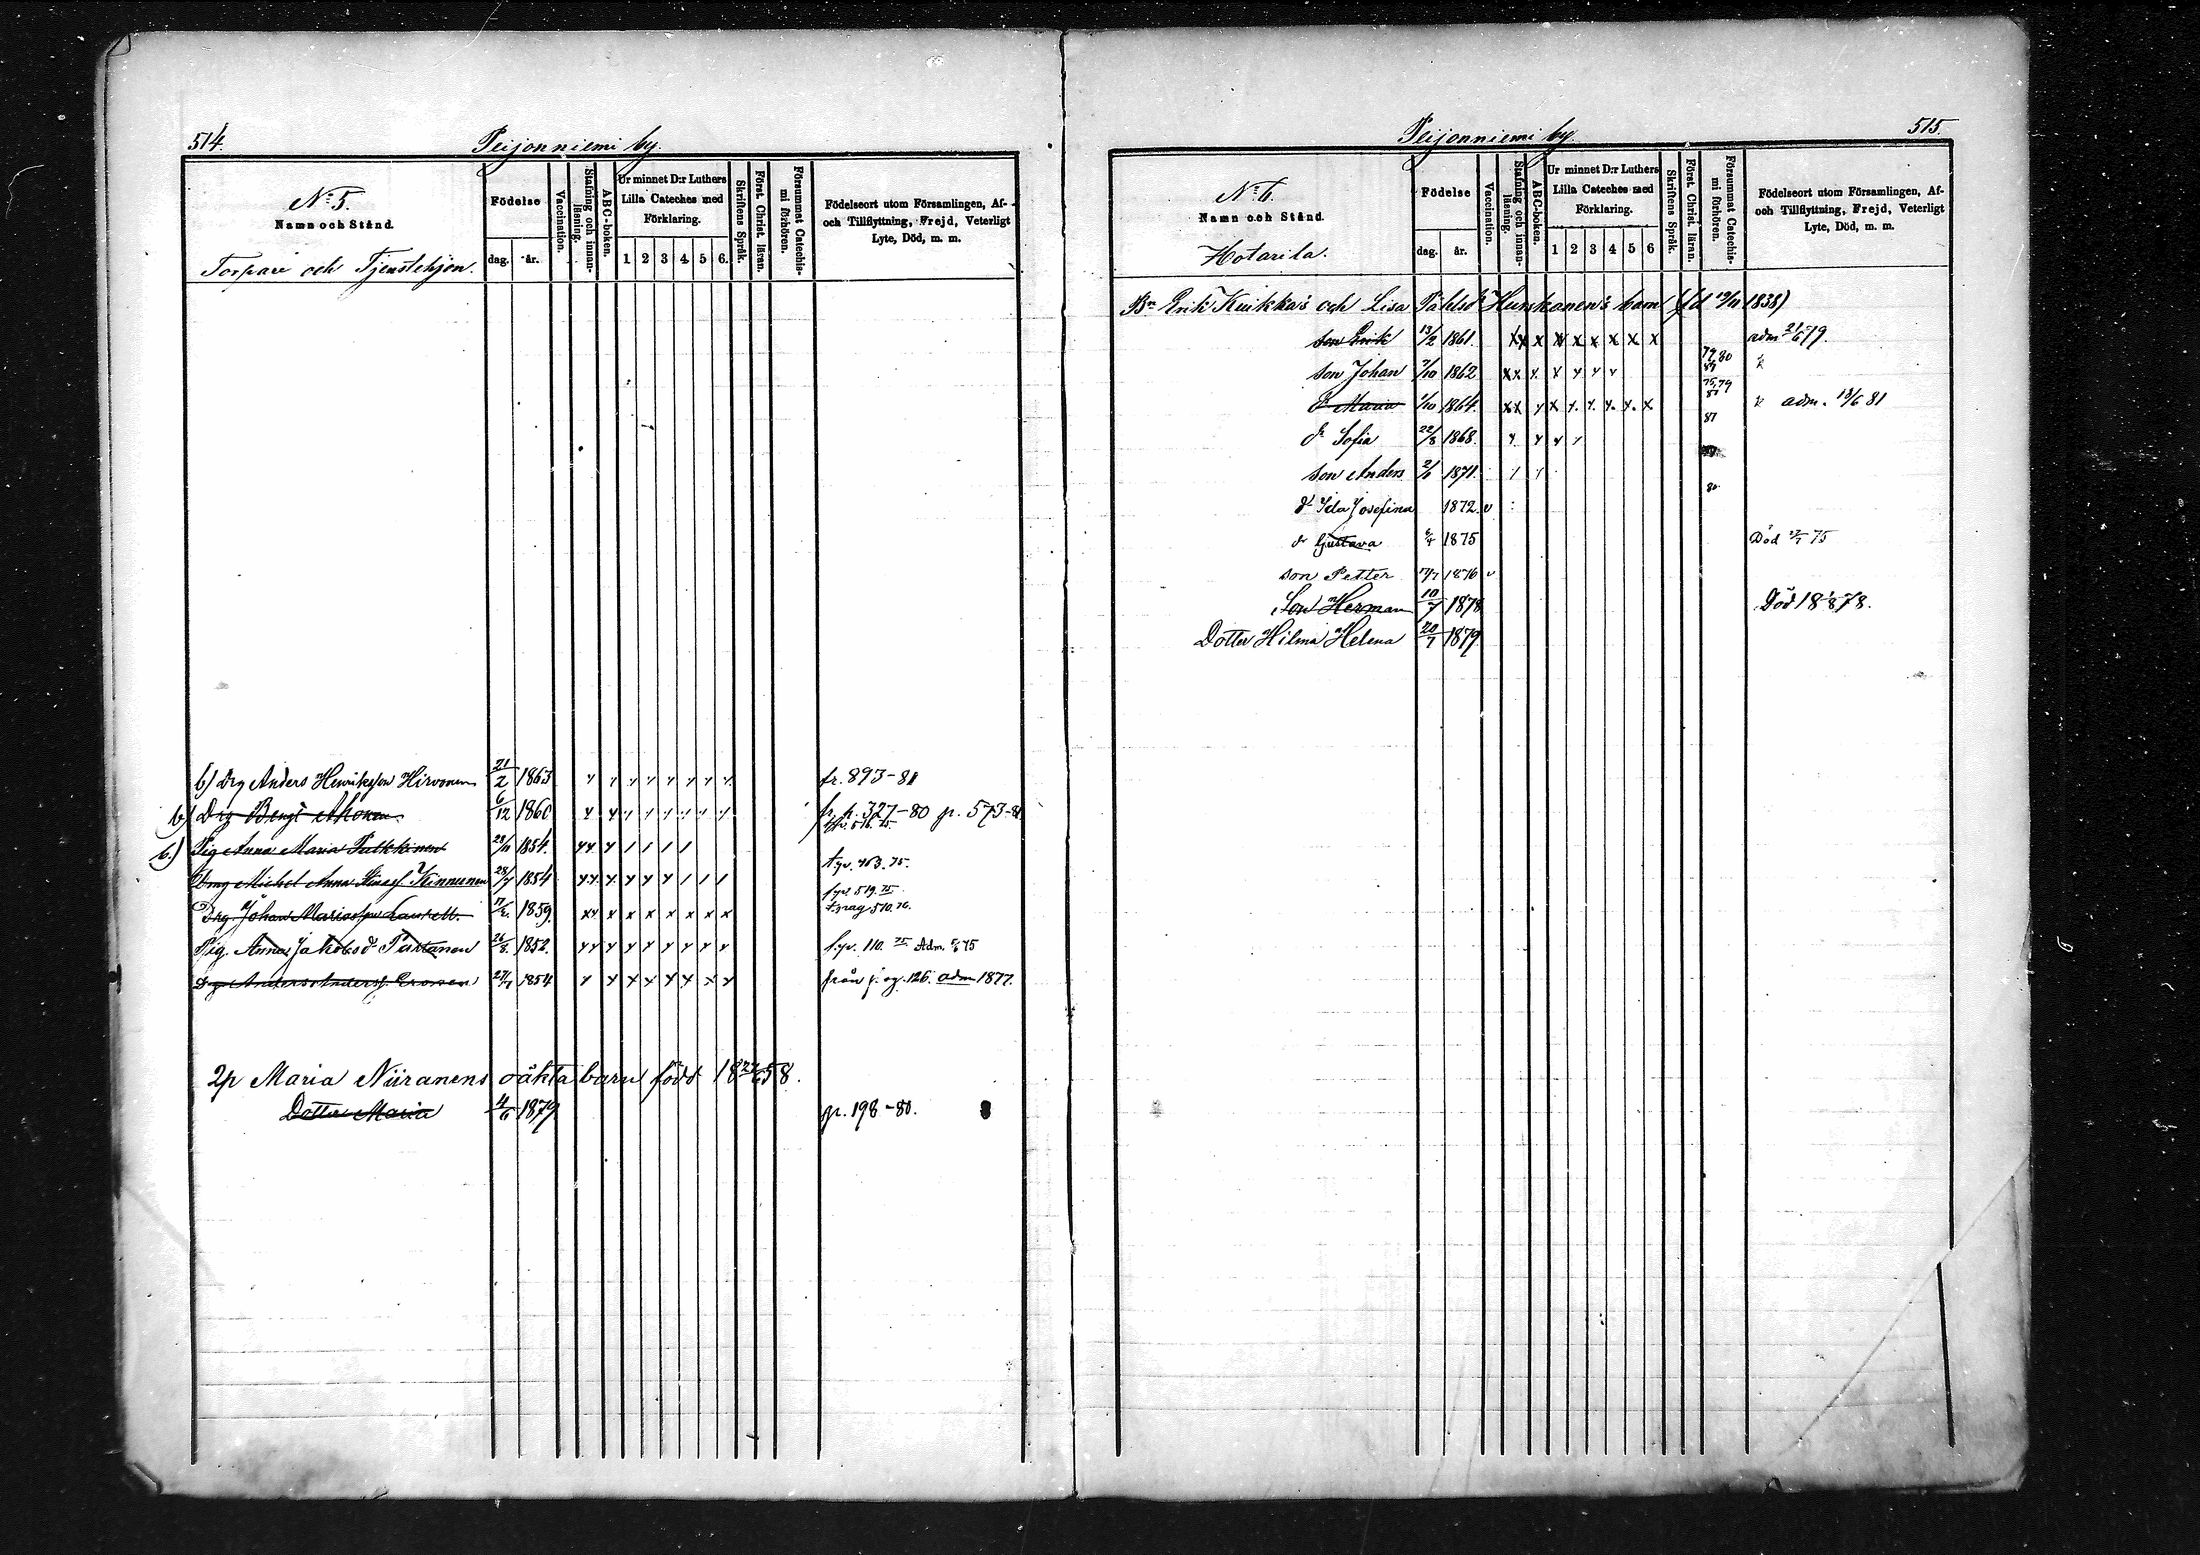 514. Peijonniemi by.
No 5.
Namn och Stånd.
Torpare och Tjenstehjon.
Födelse
dag. år.
Vaccination.
Stafning och innan-läsning.
ABC-boken.
Ur minnet D:r Luthers Lilla Cateches med Förklaring.
1 2 3 4 5 6.
Skriftens Språk.
Först. Christ. läran.
Försummat Catechis-mi förhören.
Födelseort utom Församlingen, Af- och Tillflyttning, Frejd, Veterligt Lyte, Död, m. m.
b) Drg Anders Henriksson Hirvonen 21/2 1863 fr. 893-81
b) Drg Bengt Ahonen 6/12 1860 fr. p. 327-80 gr. 573-81
b.) Pig Anna Maria Pulkkinen 28/11 1854.
Drng Michel Kinnunen 28/7 1854 fr. 463. 75.
Drg. Johan Laurell. 1859.
Pig. Anna Jakobsd. Partanen 26/8. 1852. 110. 75 Adm. 75
Drg Anders Anderss. Eronen 1854 från 126. adm 1877.
2p Maria Niiranens oäkta barn född 1858.
Dotter Maria 4/6 1879 gr. 198-80.
Peijonniemi by. 515.
No 6.
Namn och Stånd.
Hotarila.
Födelse
dag. år.
Vaccination.
Stafning och innan-läsning.
ABC-boken.
Ur minnet D:r Luthers Lilla Cateches med Förklaring.
1 2 3 4 5 6
Skriftens Språk.
Först. Christ. läran.
Försummat Catechis-mi förhören.
Födelseort utom Församlingen, Af- och Tillflyttning, Frejd, Veterligt Lyte, Död, m. m.
Bn Erik Kuikka's och Lisa Påhlsd Hurskanen's barn (fd 1838)
son Erik 13/2 1861. adm 21/6 79.
son Johan 7/10 1862 79,80
dr Maria 1/10 1864. 75,79 adm. 13/6 81
dr Sofia 22/8 1868.
son Anders 1871.
dr Ida Josefina 1872. v
dr Gustava 1875 Död 75
son Petter 1876 v
Son Herman 10/7 1878 Död 18 18/8 78.
Dotter Hilma Helena 20/7 1879.